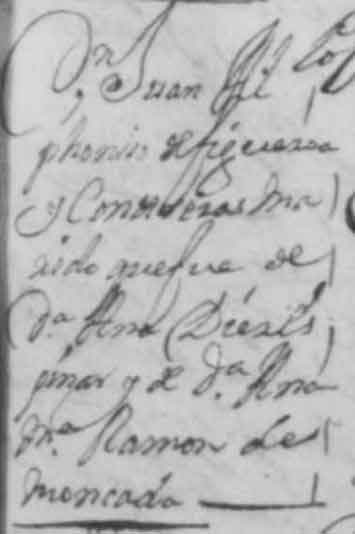 Dn Juan Al
phonso de figueroa
y Contreras Ma
rido que fue de
Da. Ana Díez
pinar y de Da. Ana
Ma. Ramon de
Moncada